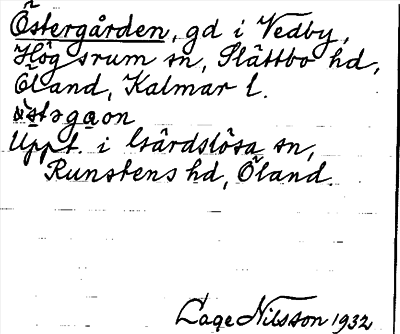 Östergården, gd i Vedby,
Högsrum sn, Slättbo hd,
Öland, Kalmar l.
östəgaon
Uppt. i Gärdslösa sn,
Runstens hd, Öland.
Lage Nilsson 1932